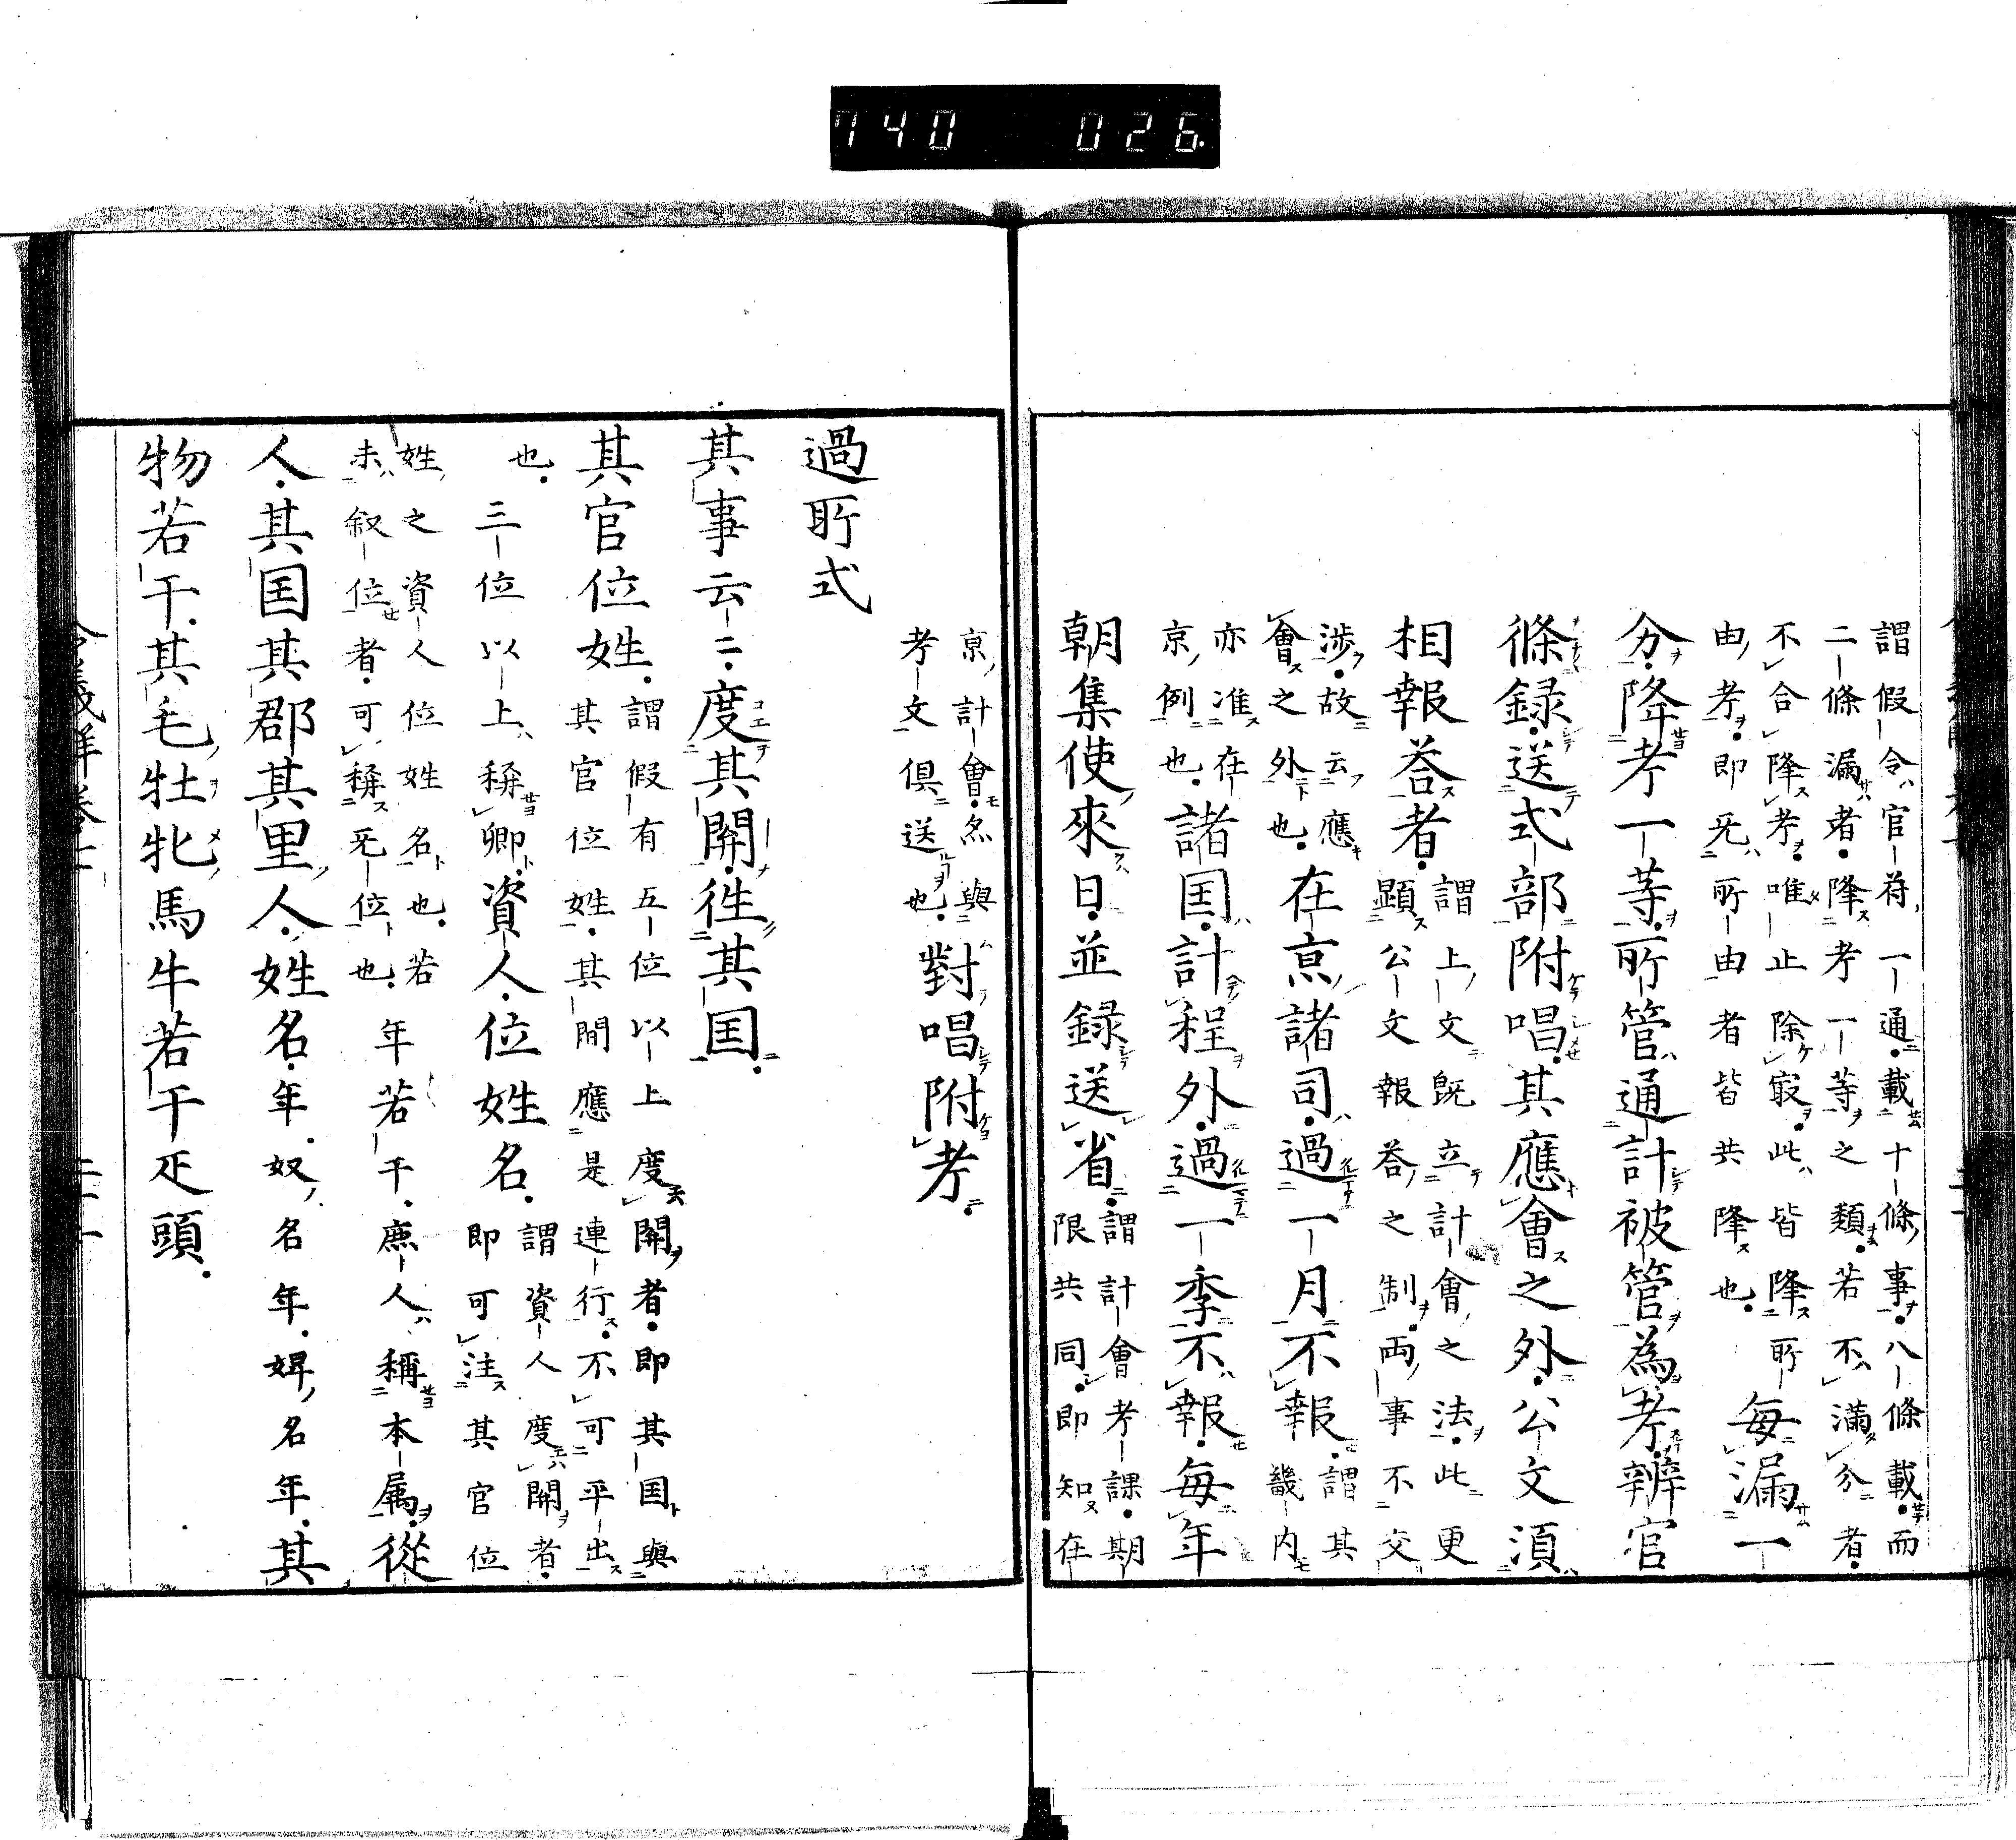 740 026
謂假令官符一通載十條事八條載而
二條漏者降考一等之類若不滿分者
不合降考唯止除冣此皆降所
由考即旡所由者皆共降也
每漏一
分降考一等所管通計被管為考辨官
條録送式部附唱其應會之外公文湏
相報荅者
謂上文既立計會之法此更
顯公文報荅之制両事不交
渉故云應
會之外也
在亰諸司過一月不報
謂其
畿内
亦准在
亰例也
諸国計程外過一季不報每年
朝集使來日並録送省
謂計會考課期
限共同即知在
亰計會忽與
考文俱送也
對唱附考
過所式
其事云云度其關徃其国
其官位姓
謂假有五位以上度關者即其国與
其官位姓其間應是連行不可平出
也
三位以上稱卿資人位姓名
謂資人度關者
即可注其官位
姓之資人位姓名也若
未叙位者可稱旡位也
年若干庶人稱本属從
人其国其郡其里人姓名年奴名年婢名年其
物若干其毛牡牝馬牛若干疋頭